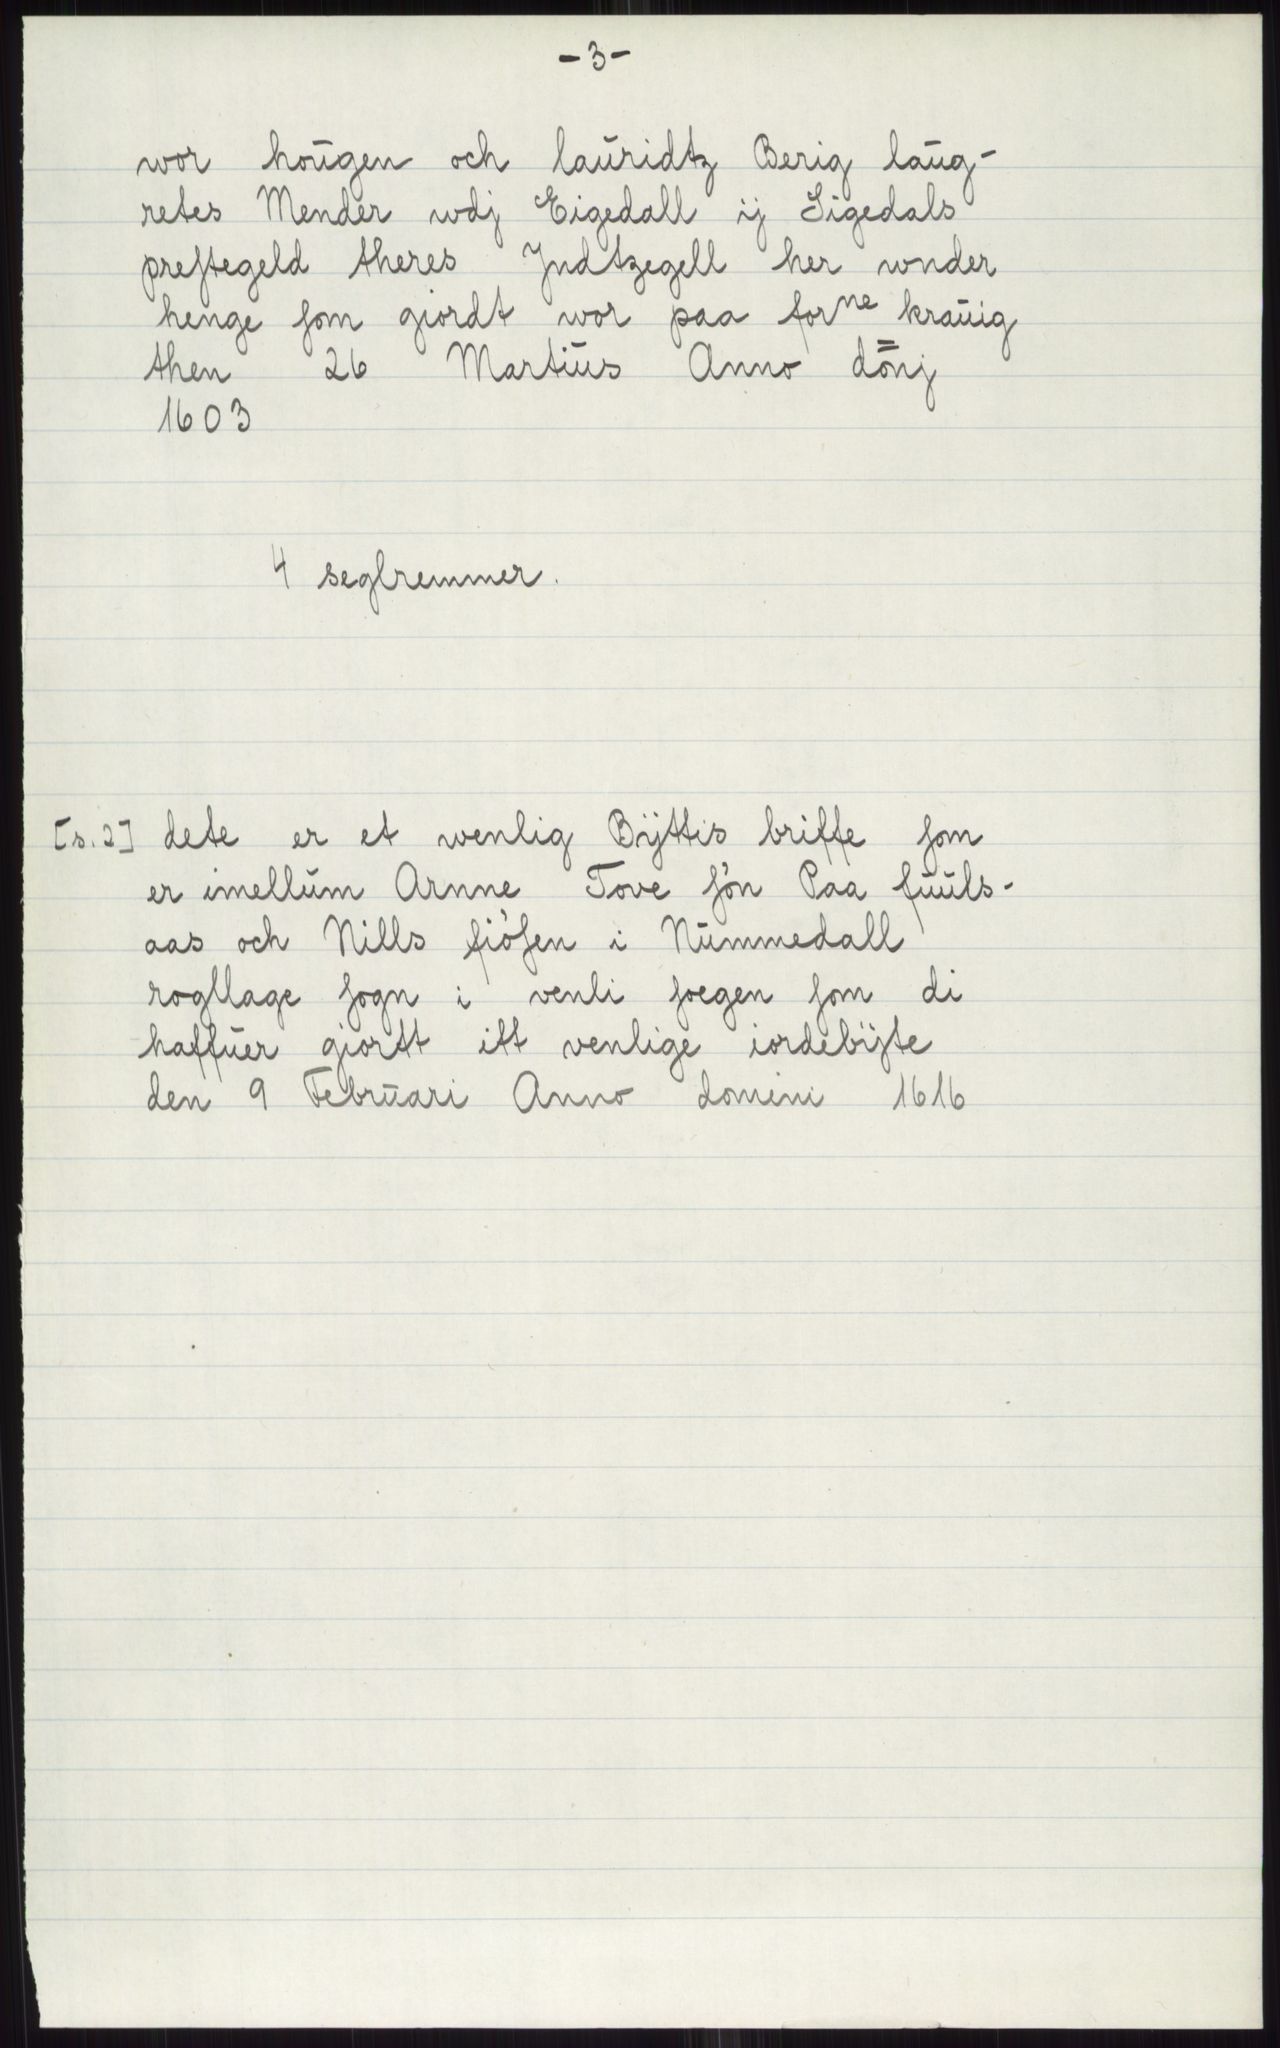 -3-
wor hoŭgen och laŭridtz Berig laŭg-
retes Mender wdj Eigedall ij Sigedals
preſtegeld theres Jndtzegell her wnder
henge ſom giordt wor paa forⁿᵉ kraŭig
then 26 Martiŭs Anno dn̄j
1603
4 seglremmer.
[s. 2] dete er et wenlig Bÿttis briffe ſom
er imellŭm Arnne Tove ſøn Paa fŭŭls-
aas och Nills fiøſen i Nŭmmedall
rogllage ſogn i venli ſoegen ſom di
haffŭer giortt itt venlige iordebÿte
den 9 Febrŭari Anno domini 1616